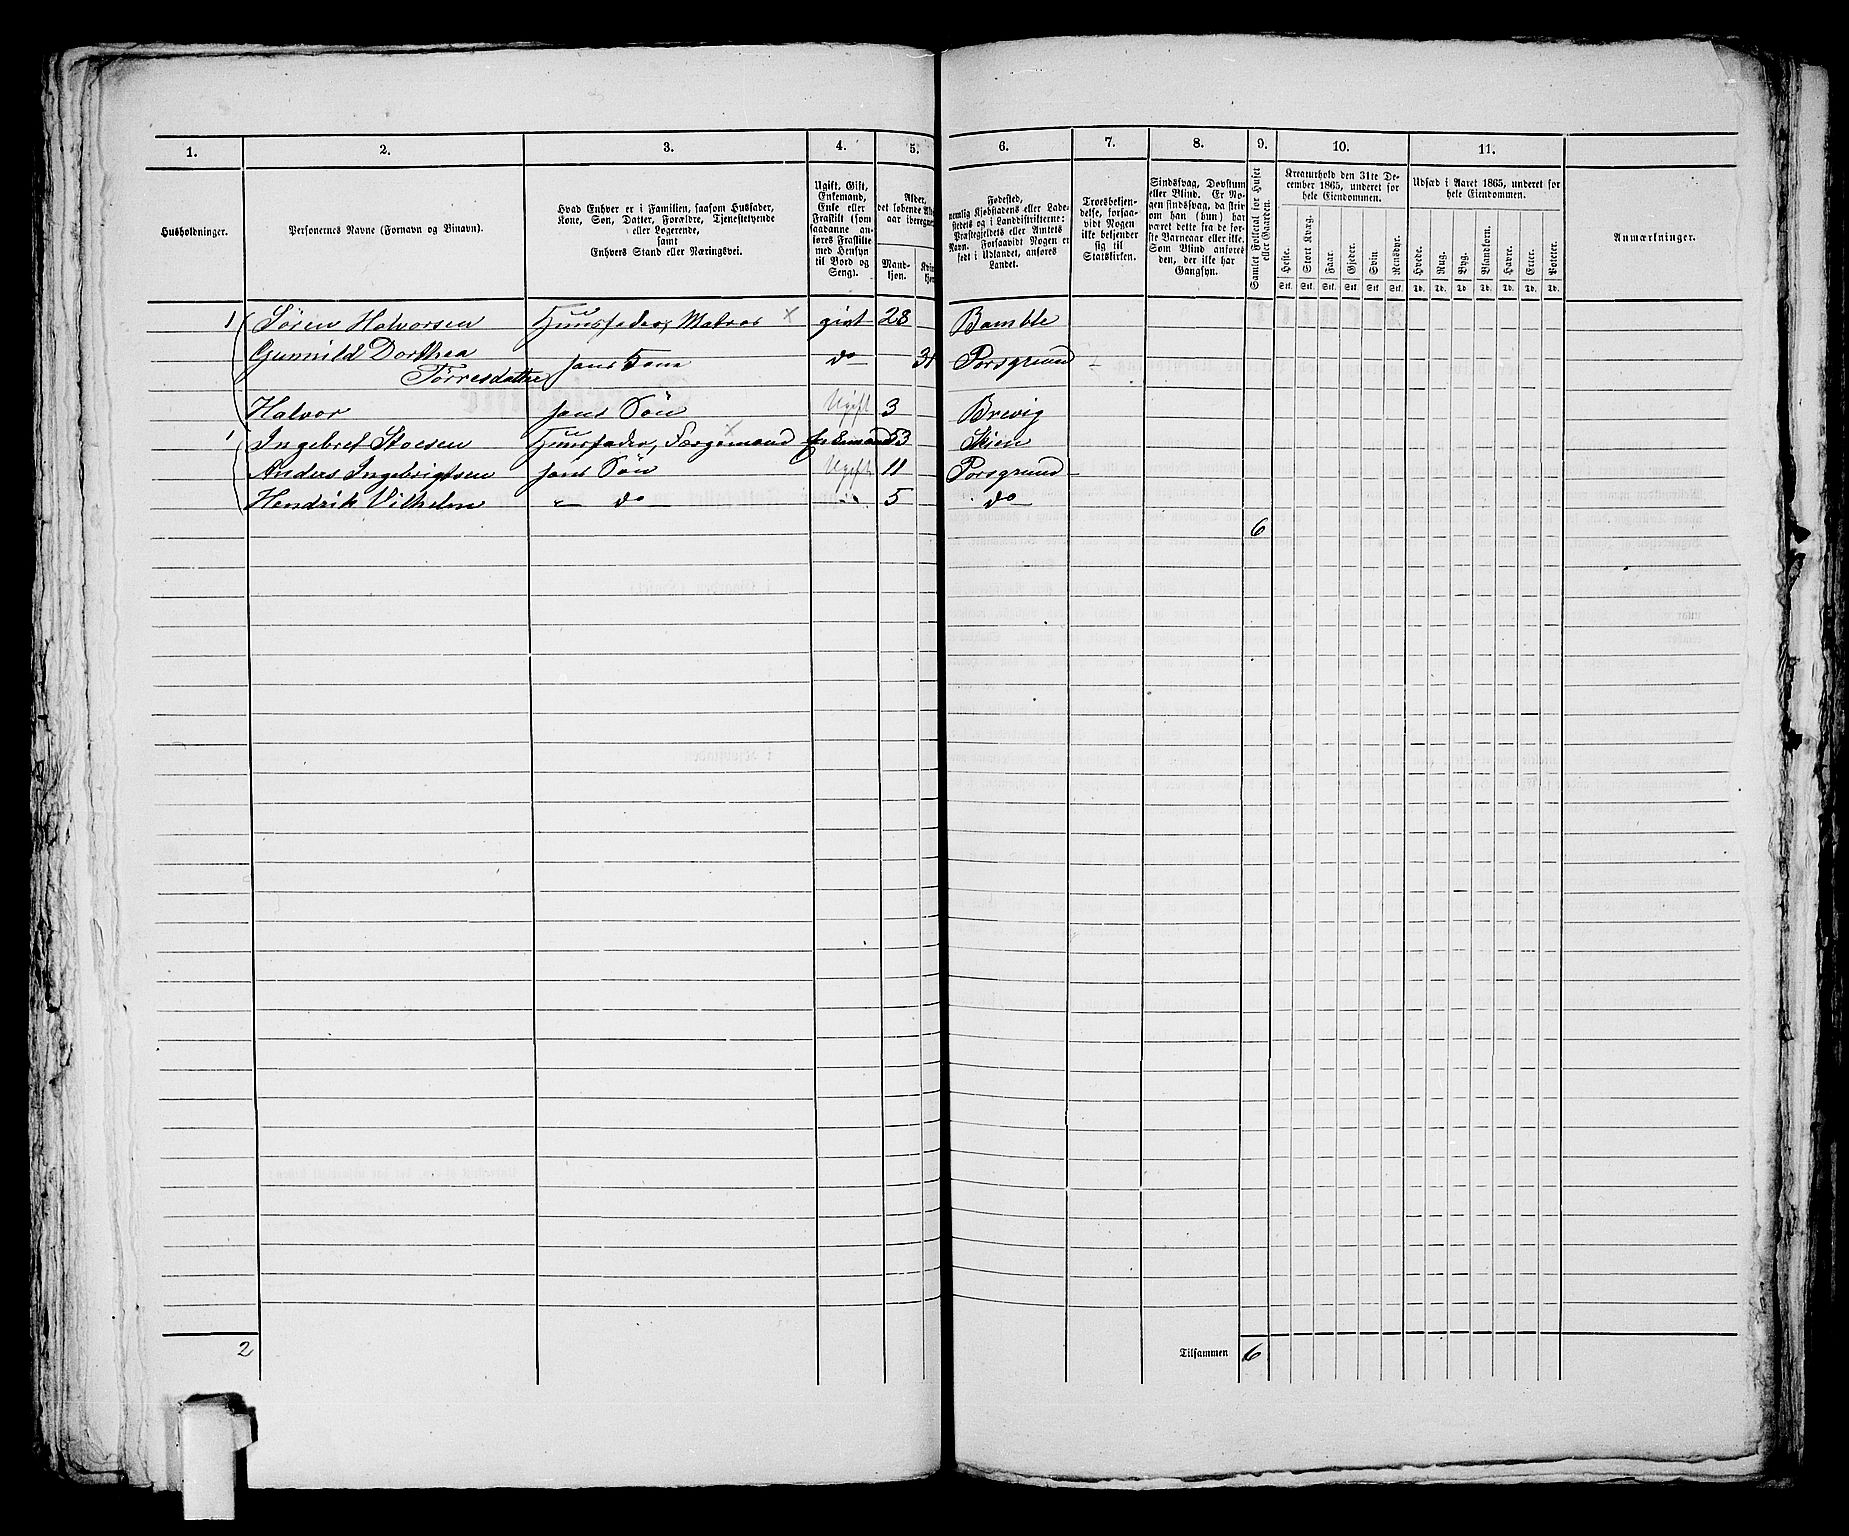 1. 2. 3. 4. 5. 6. 7. 8. 9. 10. 11.
Husholdninger.
Personernes Navne (Fornavn og Binavn).
Hvad Enhver er i Familien, saasom Husfader,
Kone, Søn, Datter, Forældre, Tjenestetyende
eller Logerende,
samt
Enhvers Stand eller Næringsvei.
Ugift, Gift,
Enkemand,
Enke eller
Fraskilt (som
saadanne an-
føres Fraskilte
med Hensyn
til Bord og
Seng).
Alder,
det løbende Al
aar iberegne
Mand-
kjøn.
Kvin
kjøn
Fødested,
nemlig Kjøbstadens eller Lade-
stedets og i Landdistrikterne:
Præstegjeldets eller Amtets
Navn. Forsaavidt Nogen er
født i Udlandet, anføres
Landet.
Troesbekjen-
delse, forsaa-
vidt Nogen
ikke bekjender
sig til
Statskirken.
Sindssvag, Døvstum
eller Blind. Er No-
gen sindssvag, da skriv
om han (hun) har
været dette fra de før-
ste Barneaar eller ikke.
Som Blind anføres
den, der ikke har
Gangsyn.
Samlet Folketal for Huset
eller Gaarden.
Kreaturhold den 31te De-
cember 1865, underet for
hele Eiendommen.
Heste. Stort Kvæg. Faar. Gjeder. Svin Rensdyr.
Stk. Stk. Stk. Stk. Stk. Stk.
Udsæd i Aaret 1865, underet for
hele Eiendommen.
Hvede. Rug. Byg. Blandkorn. Havre. Erter. Poteter.
Td. Td. Td Td. Td. Td. Td.
Anmærkninger.
1 Søren Halvorsen Huusfader, Matros x gift 28 Bamble
Gunnild Dorthea
Tørresdatter hans Kone do 31 Porsgrund
Halvor hans Søn Ugift 3 Brevig
1 Ingebret Stoesen Huusfader, Færgemand x 53 Skien
Anders Ingebrigtsen hans Søn Ugift 11 Porsgrund
Hendrik Vilhelm " do 5 do
6
2 Tilsammen 6